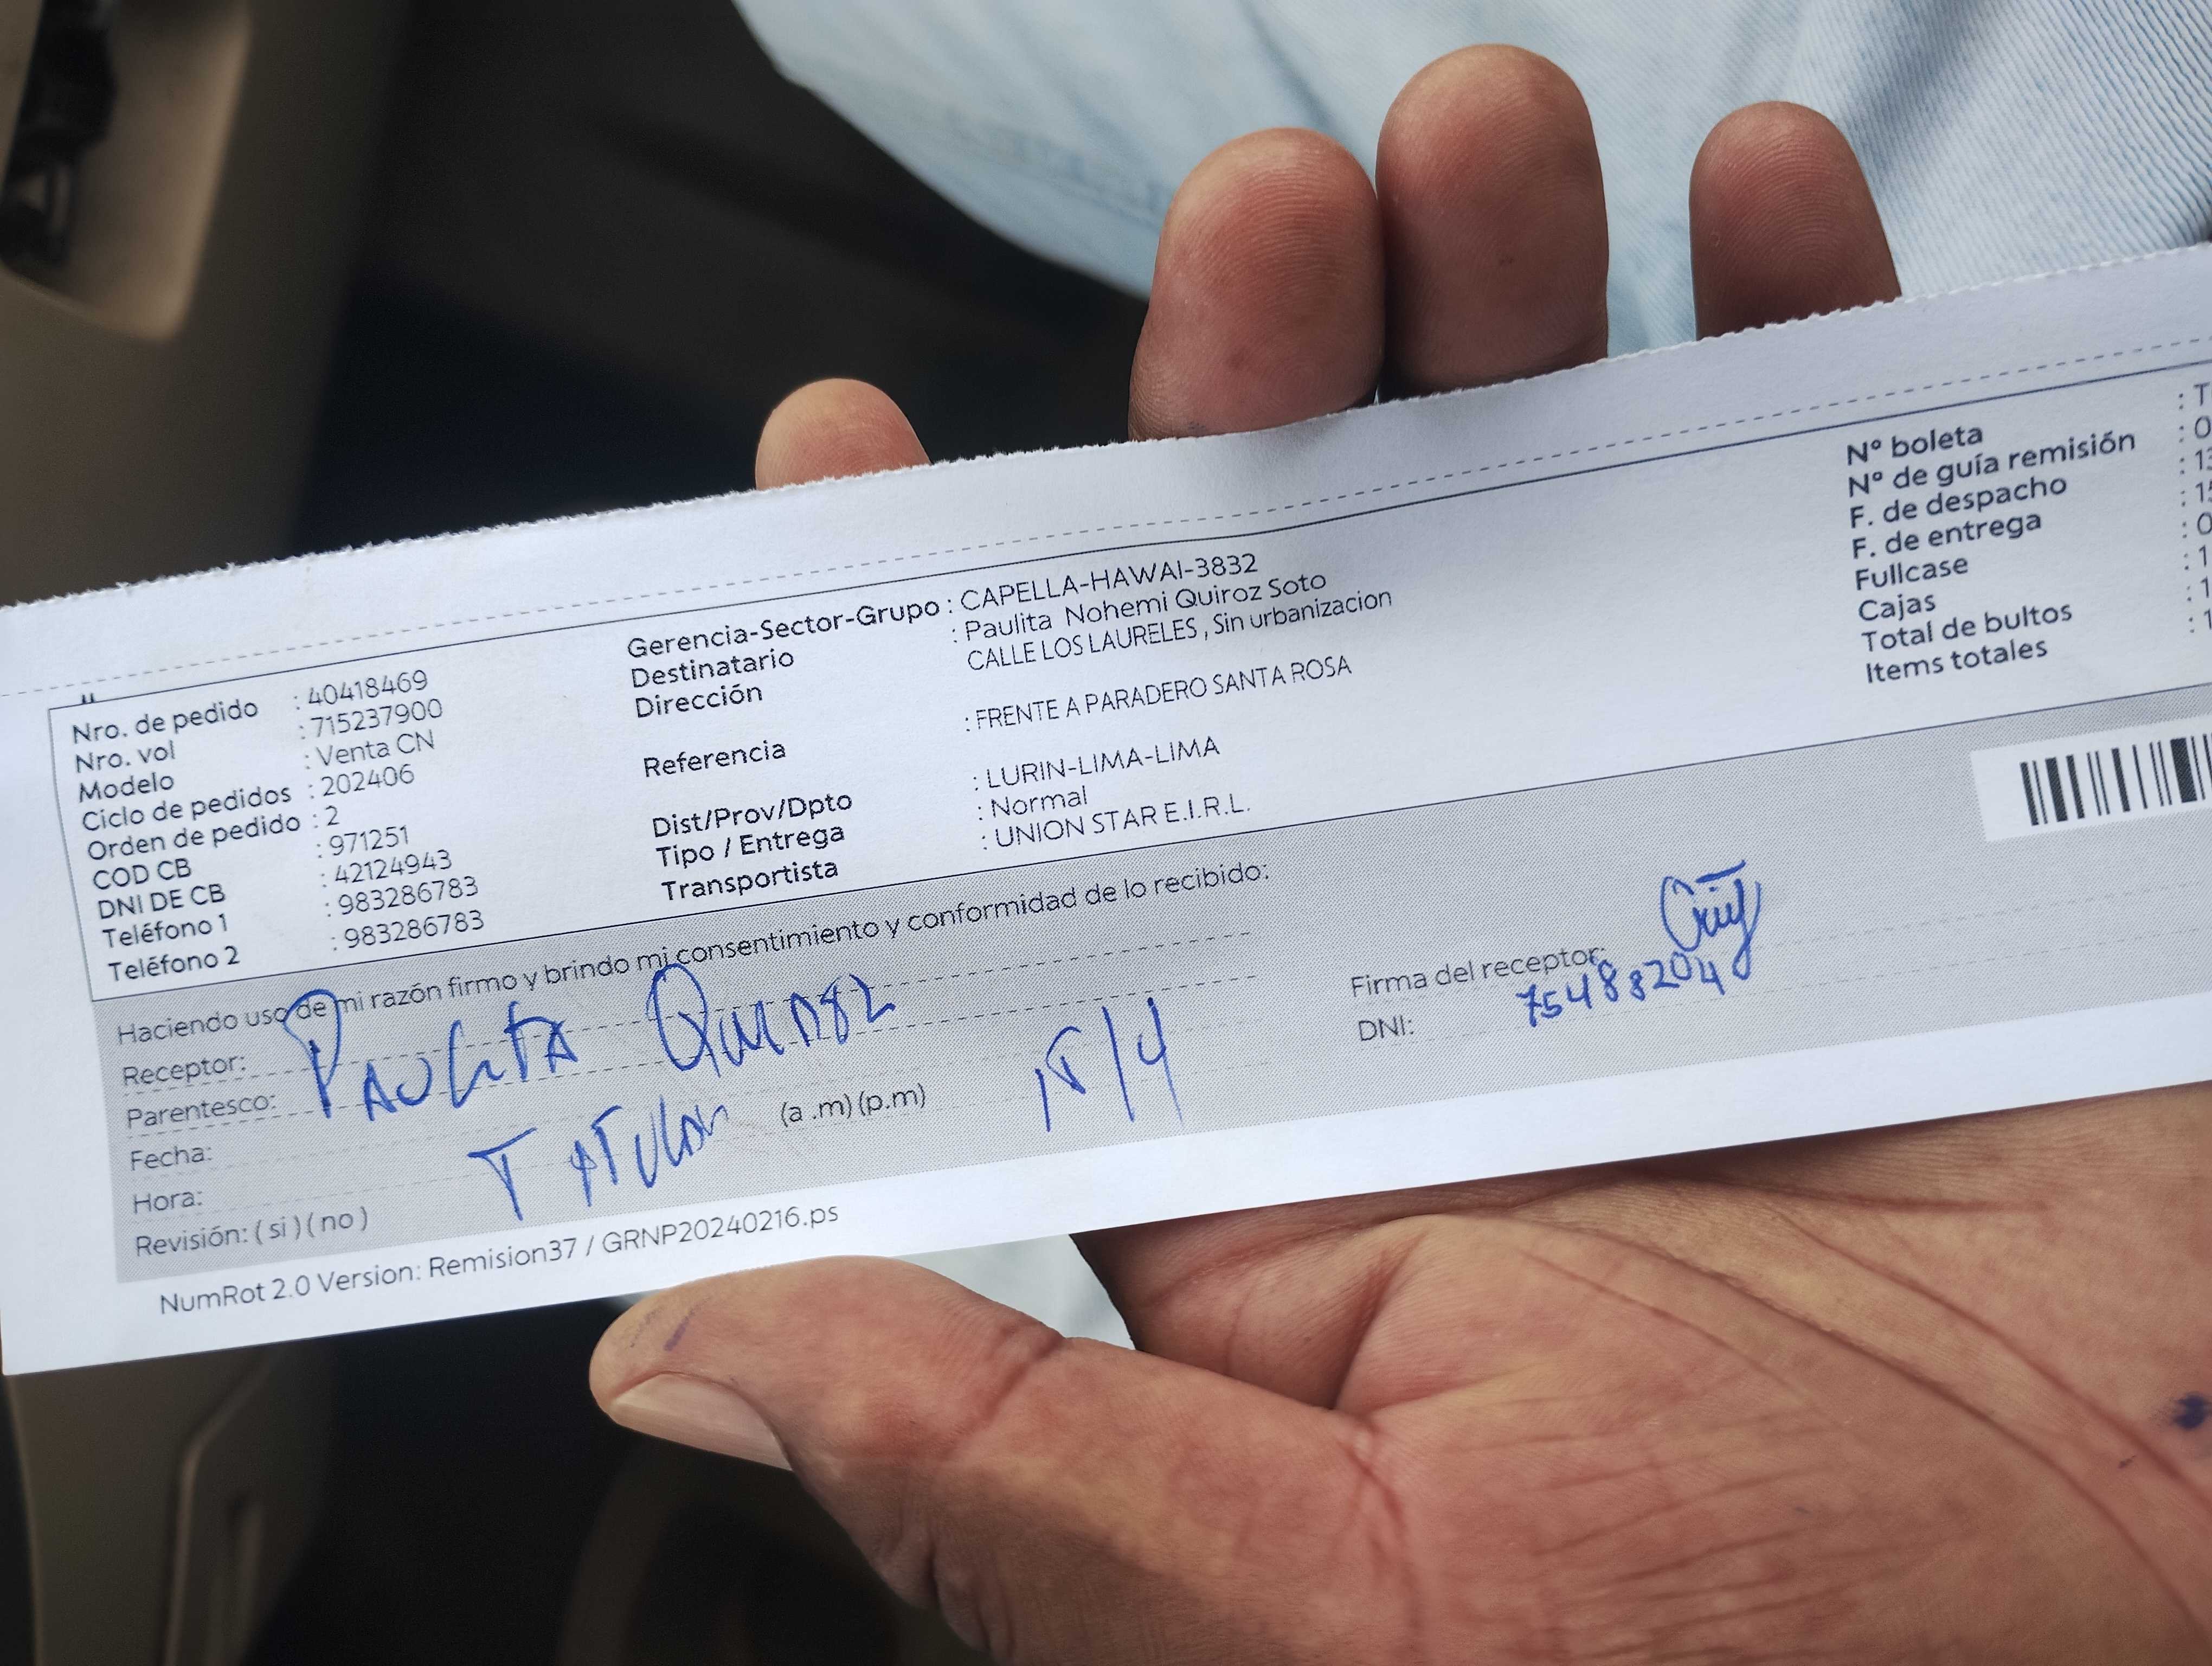 Nro. de pedido : 40418469
Nro. vol : 715237900
Modelo : Venta CN
Ciclo de pedidos : 202406
Orden de pedido : 2
COD CB : 971251
DNI DE CB : 42124943
Teléfono 1 : 983286783
Teléfono 2 : 983286783
Gerencia-Sector-Grupo : CAPELLA-HAWAI-3832
Destinatario : Paulita Nohemi Quiroz Soto
Dirección CALLE LOS LAURELES , Sin urbanizacion
Referencia : FRENTE A PARADERO SANTA ROSA
Dist/Prov/Dpto : LURIN-LIMA-LIMA
Tipo / Entrega : Normal
Transportista : UNION STAR E.I.R.L.
Nº boleta : T
Nº de guía remisión : 0
F. de despacho : 13
F. de entrega : 15
Fullcase : 0
Cajas : 1
Total de bultos : 1
Items totales : 1
Haciendo uso de mi razón firmo y brindo mi consentimiento y conformidad de lo recibido:
Receptor: PAULITA QUIROZ
Parentesco:
Fecha: 15/4
Hora: (a .m) (p.m)
TITULAR
Revisión: ( si ) ( no )
Firma del receptor:
DNI: 75488204
NumRot 2.0 Version: Remision37 / GRNP20240216.ps